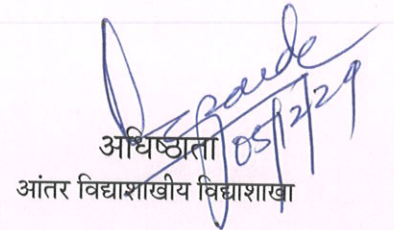 05/2/29
अधिष्ठाता
आंतर विद्याशाखीय विद्याशाखा